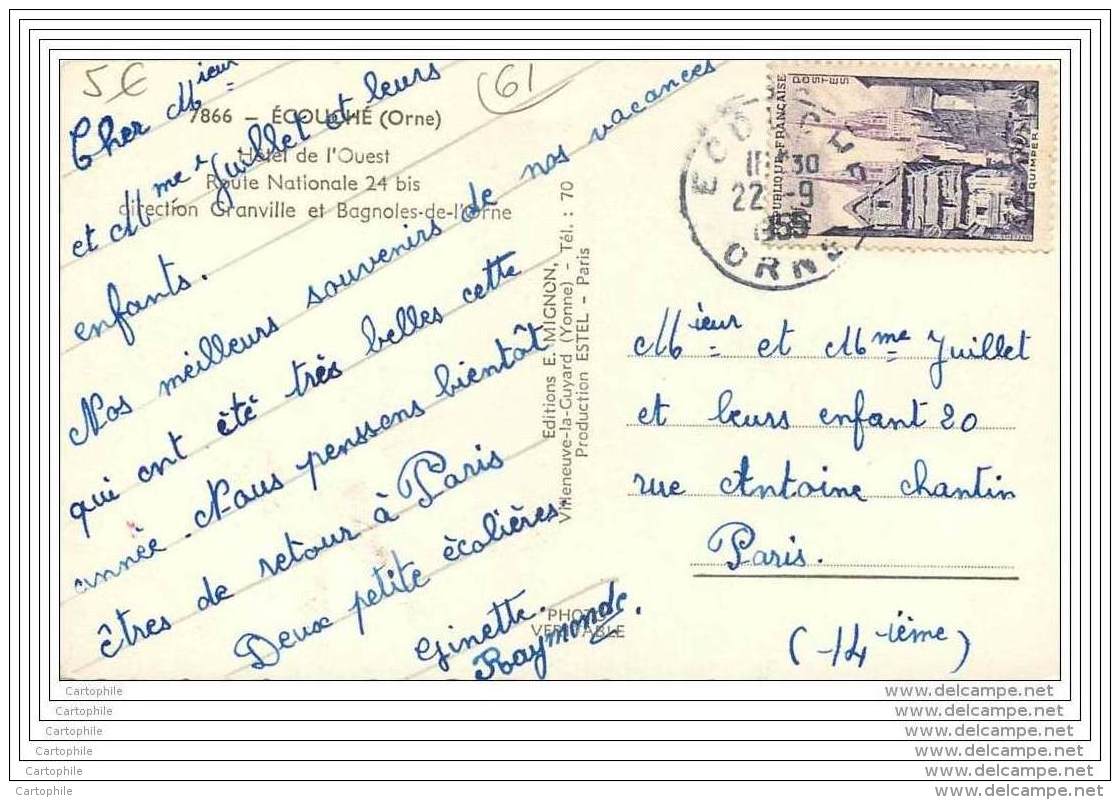 5€
61
7866 – ÉCOUCHÉ (Orne)
Hôtel de l'Ouest
Route Nationale 24 bis
direction Granville et Bagnoles-de-l'Orne
Cher Mieur
et Mme Juillet et leurs
enfants.
Nos meilleurs souvenirs de nos vacances
qui ont été très belles cette
année. Nous penssens bientôt
êtres de retour à Paris
Deux petite écolières.
Ginette.
Raymonde.
Editions E. MIGNON,
Villeneuve-la-Guyard (Yonne) - Tél. : 70
Production ESTEL - Paris
PHOTO
VERITABLE
RÉPUBLIQUE FRANÇAISE
POSTES
QUIMPER
22-9
1955
ORNE
Mieur et Mme Juillet
et leurs enfant 20
rue Antoine Chantin
Paris.
(14 ième)
Cartophile
Cartophile
Cartophile
Cartophile
Cartophile
Cartophile
www.delcampe.net
www.delcampe.net
www.delcampe.net
www.delcampe.net
www.delcampe.net
www.delcampe.net